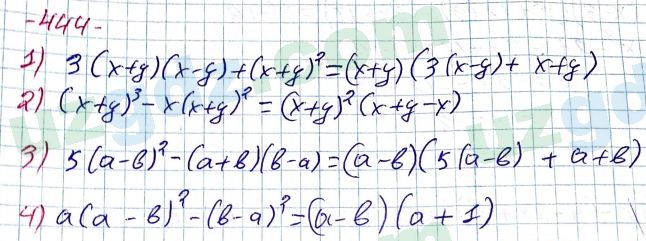 -444-
1) 3(x+y)(x-y)+(x+y)²=(x+y)(3(x-y)+ x+y)
2) (x+y)³-x(x+y)²=(x+y)²(x+y-x)
3) 5(a-в)²-(a+в)(в-a)=(a-в)(5(a-в) + a+в)
4) a(a-в)²-(в-a)²=(a-в)(a+1)